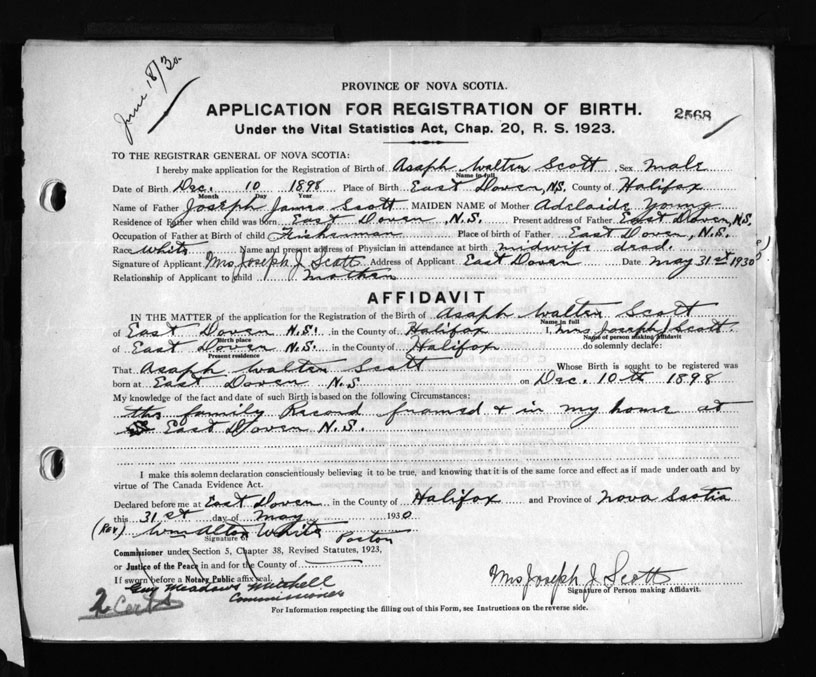 June 18/30
PROVINCE OF NOVA SCOTIA.
APPLICATION FOR REGISTRATION OF BIRTH. 2568
Under the Vital Statistics Act, Chap. 20, R. S. 1923.
TO THE REGISTRAR GENERAL OF NOVA SCOTIA:
I hereby make application for the Registration of Birth of Asaph Walter Scott Sex male
Name in full
Date of Birth Dec. 10 1898 Place of Birth East Dover, N.S. County of Halifax
Month Day Year
Name of Father Joseph James Scott MAIDEN NAME of Mother Adelaide Young
Residence of Father when child was born East Dover, N.S. Present address of Father East Dover, N.S.
Occupation of Father at Birth of child Fisherman Place of birth of Father East Dover, N.S.
Race White Name and present address of Physician in attendance at birth midwife dead.
Signature of Applicant Mrs Joseph J Scott Address of Applicant East Dover Date May 31st 1930
Relationship of Applicant to child Mother
AFFIDAVIT
IN THE MATTER of the application for the Registration of the Birth of Asaph Walter Scott
Name in full
of East Dover N.S. in the County of Halifax I, Mrs Joseph J Scott.
Birth place Name of person making Affidavit
of East Dover N.S. in the County of Halifax do solemnly declare:
Present residence
That Asaph Walter Scott Whose Birth is sought to be registered was
born at East Dover N.S. on Dec. 10th 1898
My knowledge of the fact and date of such Birth is based on the following Circumstances:
the family Record framed & in my home at
East Dover N.S.
I make this solemn declaration conscientiously believing it to be true, and knowing that it is of the same force and effect as if made under oath and by
virtue of The Canada Evidence Act.
Declared before me at East Dover in the County of Halifax and Province of Nova Scotia
this 31st day of May 1930
(Rev) Wm Alton White Pastor
Signature of
Commissioner under Section 5, Chapter 38, Revised Statutes, 1923,
or Justice of the Peace in and for the County of
If sworn before a Notary Public affix seal.
Mrs Joseph J Scott
Signature of Person making Affidavit.
Guy Meadows Mitchell
Commissioner
2 Certs
For Information respecting the filling out of this Form, see Instructions on the reverse side.